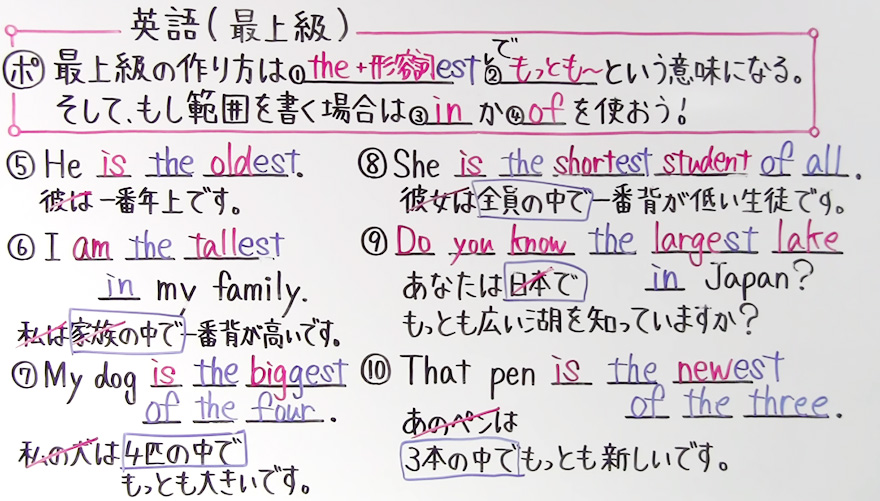 英語(最上級)
ポ 最上級の作り方は①the+形容詞estで②もっとも～という意味になる。
そして、もし範囲を書く場合は③inか④ofを使おう!
⑤He is the oldest.
彼は一番年上です。
⑥I am the tallest
in my family.
私は家族の中で一番背が高いです。
⑦My dog is the biggest
of the four.
私の犬は4匹の中で
もっとも大きいです。
⑧She is the shortest student of all.
彼女は全員の中で一番背が低い生徒です。
⑨Do you know the largest lake
in Japan?
あなたは日本で
もっとも広い湖を知っていますか?
⑩That pen is the newest
of the three.
あのペンは
3本の中でもっとも新しいです。